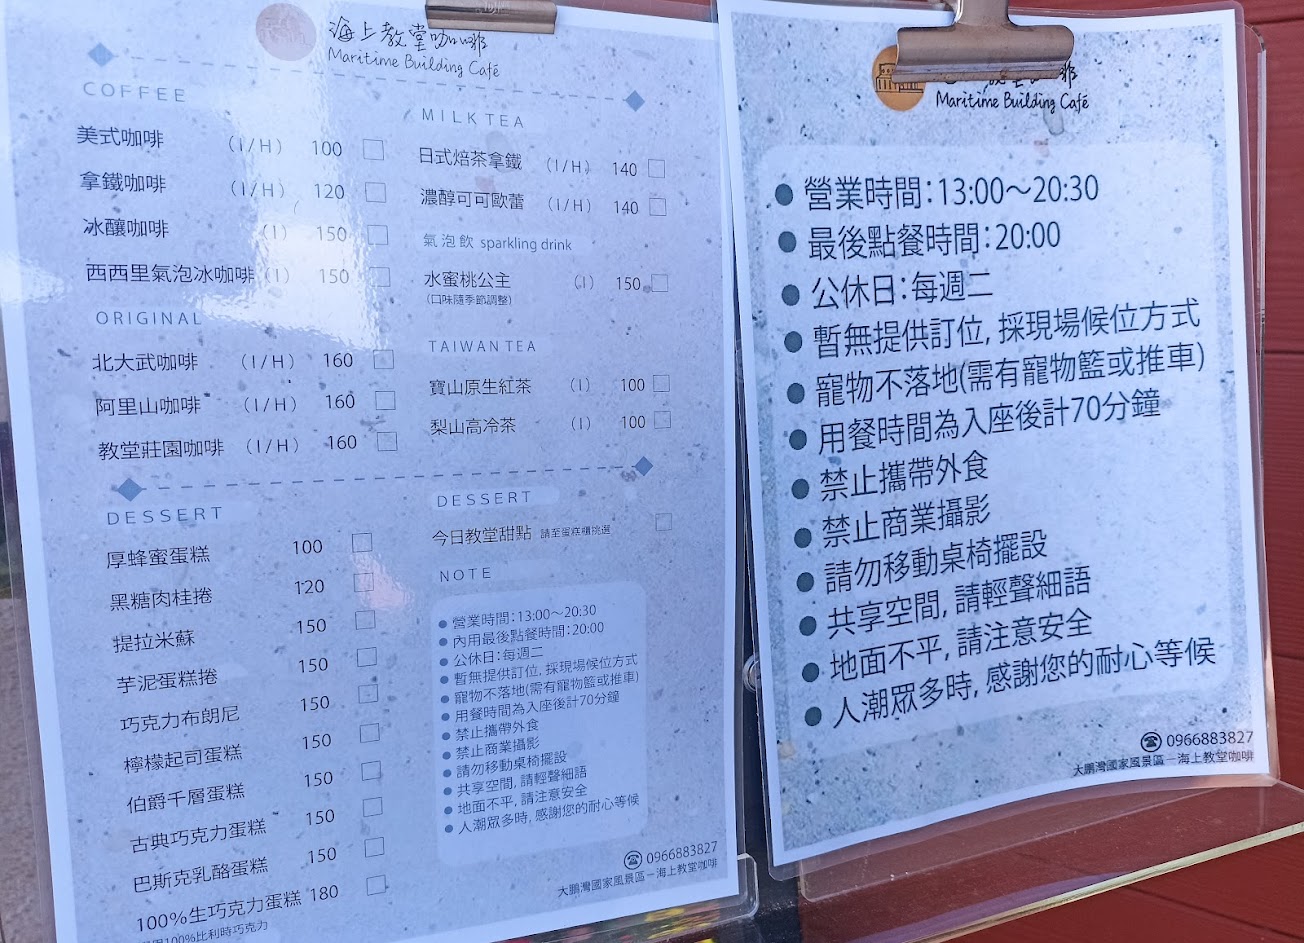 海上教堂咖啡
Maritime Building Café
COFFEE
美式咖啡 (I/H) 100
拿鐵咖啡 (I/H) 120
冰釀咖啡 (I) 150
西西里氣泡冰咖啡 (I) 150
ORIGINAL
北大武咖啡 (I/H) 160
阿里山咖啡 (I/H) 160
教堂莊園咖啡 (I/H) 160
MILK TEA
日式焙茶拿鐵 (I/H) 140
濃醇可可歐蕾 (I/H) 140
氣泡飲 sparkling drink
水蜜桃公主 (I) 150
(口味隨季節調整)
TAIWAN TEA
寶山原生紅茶 (I) 100
梨山高冷茶 (I) 100
DESSERT
厚蜂蜜蛋糕 100
黑糖肉桂捲 120
提拉米蘇 150
芋泥蛋糕捲 150
巧克力布朗尼 150
檸檬起司蛋糕 150
伯爵千層蛋糕 150
古典巧克力蛋糕 150
巴斯克乳酪蛋糕 150
100%生巧克力蛋糕 180
100%比利時巧克力
DESSERT
今日教堂甜點 請至蛋糕櫃挑選
NOTE
● 營業時間:13:00～20:30
● 內用最後點餐時間:20:00
● 公休日:每週二
● 暫無提供訂位, 採現場候位方式
● 寵物不落地(需有寵物籃或推車)
● 用餐時間為入座後計70分鐘
● 禁止攜帶外食
● 禁止商業攝影
● 請勿移動桌椅擺設
● 共享空間, 請輕聲細語
● 地面不平, 請注意安全
● 人潮眾多時, 感謝您的耐心等候
☎ 0966883827
大鵬灣國家風景區－海上教堂咖啡
Maritime Building Café
● 營業時間:13:00～20:30
● 最後點餐時間:20:00
● 公休日:每週二
● 暫無提供訂位, 採現場候位方式
● 寵物不落地(需有寵物籃或推車)
● 用餐時間為入座後計70分鐘
● 禁止攜帶外食
● 禁止商業攝影
● 請勿移動桌椅擺設
● 共享空間, 請輕聲細語
● 地面不平, 請注意安全
● 人潮眾多時, 感謝您的耐心等候
☎ 0966883827
大鵬灣國家風景區－海上教堂咖啡